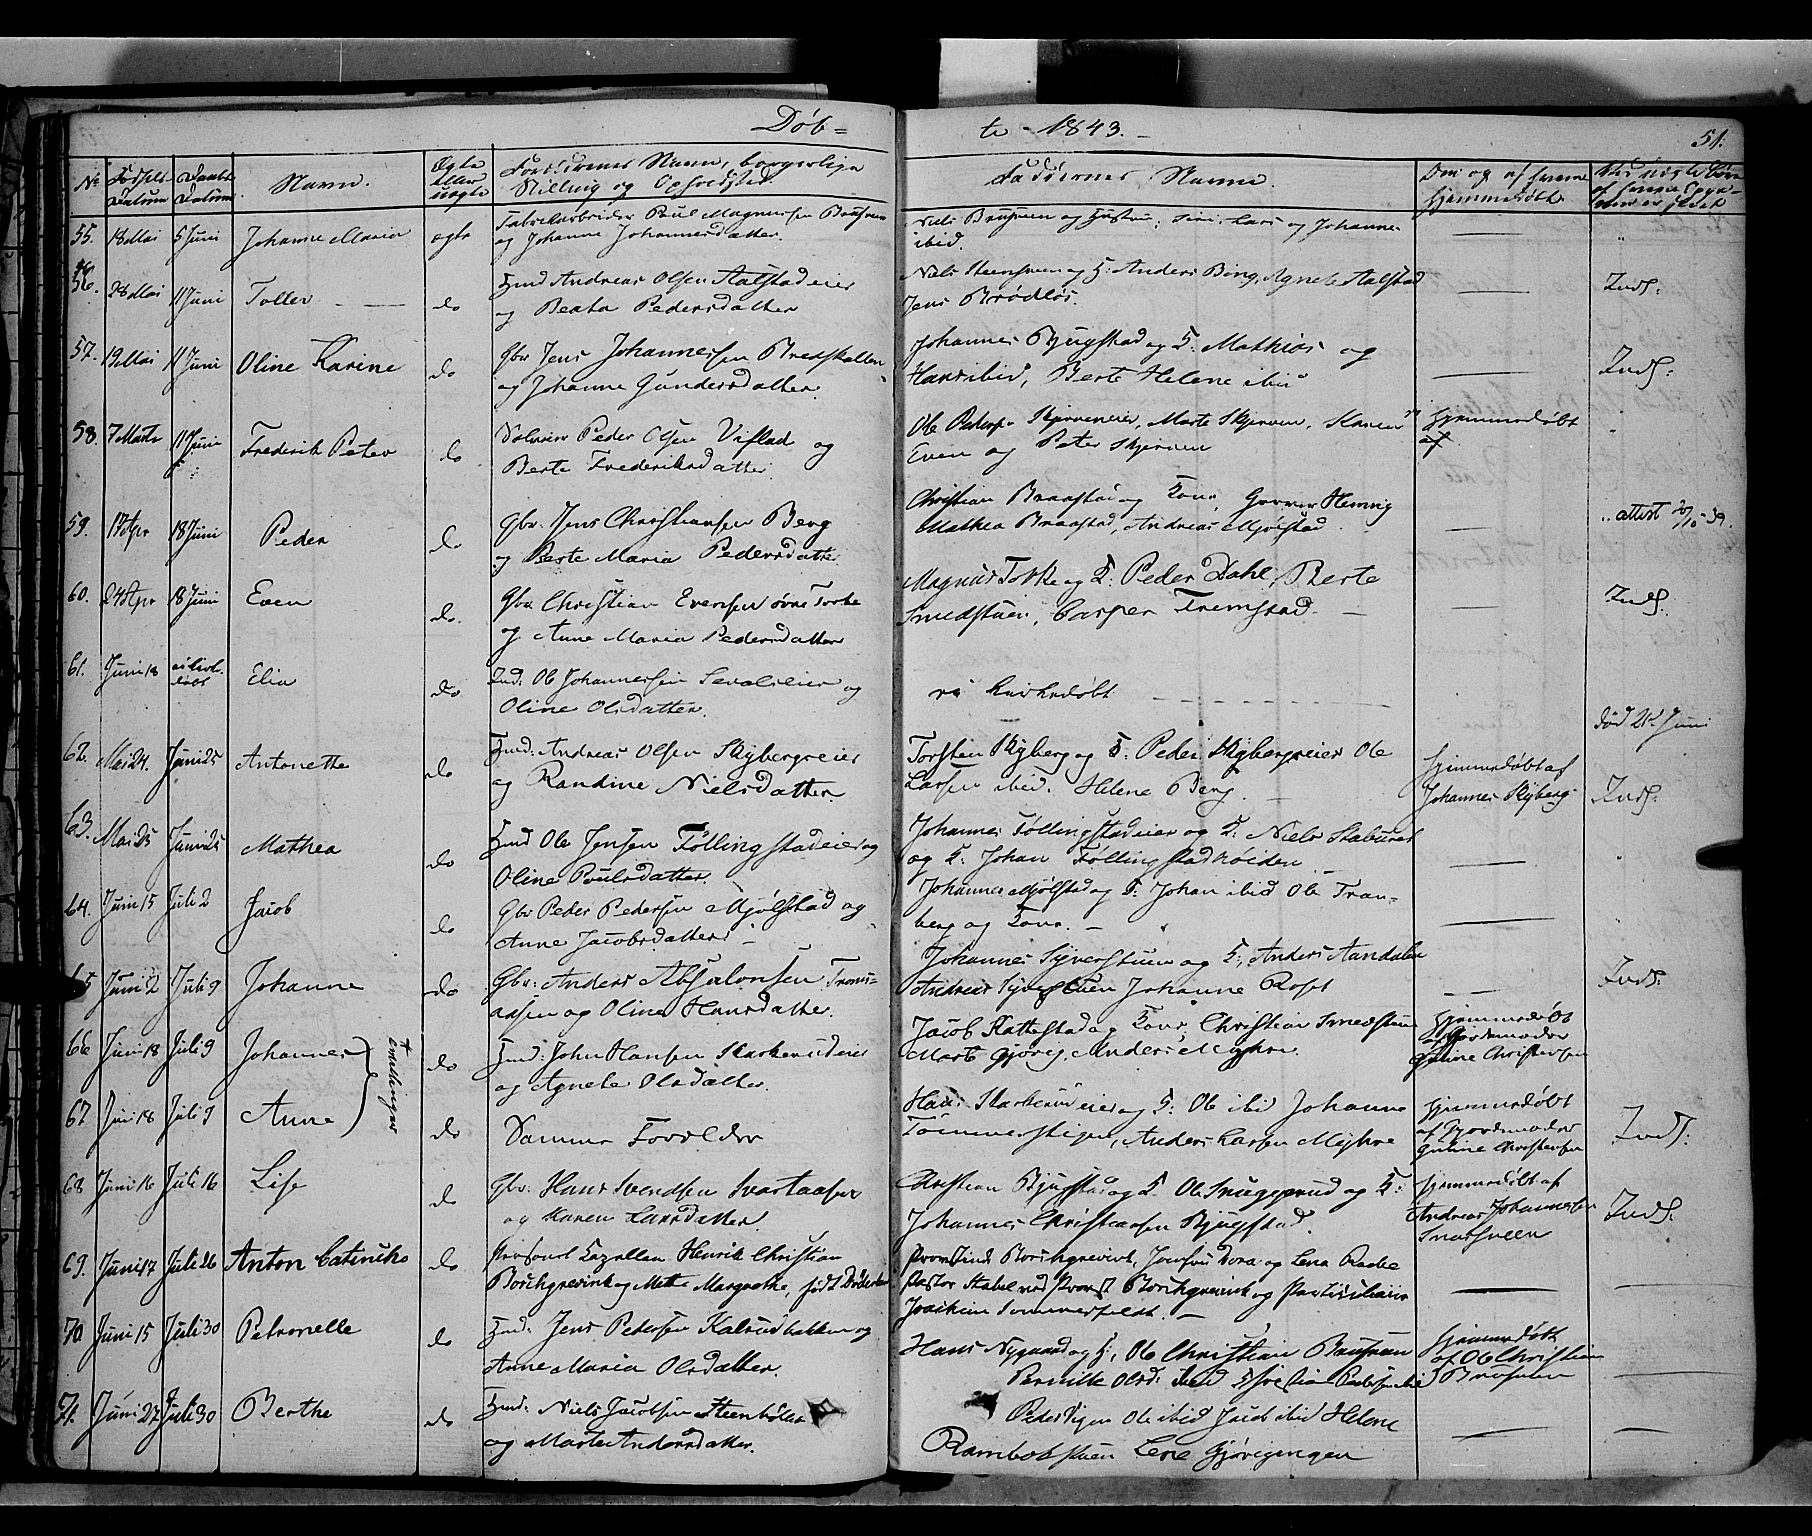 Døb= te 1843. 51.
No Fødsels Datum Daabs Datum Navn. Ægte eller uægte Forældrenes Navn, borgerlige Stilling og Opholdsted. Faddernes Navne. Om og af hvem hjemmedøbt
55. 18 Mai 5 Juni Johanne Maria ægte Poul Magnussen Brusveen
og Johanne Johannesdatter. Niels Brusveen og Hustru; Lars og Johanne ibid.
56. 28 Mai 11 Juni Tollev do Hmd Andreas Olsen Aalstadeier
og Beata Pedersdatter Niels Steensveen og H: Anders Bing, Agnete Aalstad
Jens Brødløs. Inds:
57. 19 Mai 11 Juni Oline Karine do Gbr Jens Johannessen Bredskallen
og Johanne Gundersdatter. Johannes Bjugstad og H. Mathias og
Hans ibid, Berte Helene ibid Inds:
58. 7 Marts 11 Juni Frederik Peter do Peder Olsen Viflad og
Berte Frederiksdatter Ole Peders. Skjerveneier, Marte Skjerven, Karen
Even og Peter Skjerven Hjemmedøbt af
59. 17 Apr 18 Juni Peder do Gbr: Jens Christiansen Berg
og Berte Maria Pedersdatter Christian Braastad og Kone,
Mathea Braastad, Andreas Mjølstad attest
60. 24 Apr 18 Juni Even do Gbr Christian Evensen øvre Torke
og Anne Maria Pedersdatter Magnus Torke og H: Peder Dahl, Berte
Smedstuen, Casper Fremstad. Inds.
61. Juni 18 Elia do Ind: Ole Johannessen
Oline Olsdatter. ei kirkedøbt død 22 Juni
62. Mai 24. Juni 25 Antonette do Hmd: Andreas Olsen Skybergeier
og Randine Nielsdatter. Torsten Skyberg og H: Peder Skybergeier Ole
Larsen ibid. Helene Berg. Hjemmedøbt af
Johannes Skyberg Inds:
63. Mai 25 Juni 25 Mathea do Hmd Ole Jensen Føllingstadeier og
Oline Poulsdatter. Johannes Føllingstadeier og H: Niels Staburet
og H: Johan Føllingstadhøiden
64. Juni 15 Juli 2 Jacob do Gbr Peder Pedersen Mjølstad og
Anne Jacobsdatter Johannes Mjølstad og H: Johan ibid Ole Tran-
berg og Kone.
65 Juni 2 Juli 9 Johanne do Gbr: Anders Absalonsen
og Oline Hansdatter. Johannes Syverstuen og H; Anders Aandalen
Andreas Syverstuen Johanne Roset Inds:
66 Juni 18 Juli 9 Johannes Tvillinger do Hmd: John Hansen Skarberudeier
og Agnete Olsdatter. Jacob Kattestad og Kone, Christian Smedstuen
Marte Gjøvig Anders Myhre. Hjemmedøbt
af Gjordemoder
Guline Christensen
67 Juni 18 Juli 9 Anne do Samme Forældre Hans Skarberudeier og H: Ole ibid Johanne
Tømmerstigen, Anders Larsen Myhre Hjemmedøbt
af Gjordemoder
Guline Christensen Inds:
68 Juni 16 Juli 16 Lise do Gbr: Hans Svendsen Svartaasen
og Karen Larsdatter. Christian Bjugstad og H. Ole Snuggerud og H:
Johannes Christiansen Bjugstad. Hjemmedøbt af
Andreas Johannesen Inds:
69. Juni 17 Juli 26 Anton Catinko do Personel Capellan Henrik Christian
Borchgrevink og Mette Margrethe, født Provstinde Borchgrevink, Jomfru Dora og Lena
Pastor Stabel ved Provst Borchgrevink og
Joachim Sommerfeldt.
70 Juni 15 Juli 30 Petronelle do Hmd: Jens Pedersen Kalrudbakken og
Anne Maria Olsdatter. Hans Nygaard og H, Ole Christian Brusveen
Pernille Olsd: ibid Christian Pedersen Hjemmedøbt
af Ole Christian
Brusveen
71. Juni 27 Juli 30 Berthe do Hmd: Niels Jacobsen
og Marte Andersdatter. Peder Vigen Ole ibid Jacob ibid Helene
Lene Gjøvigengen